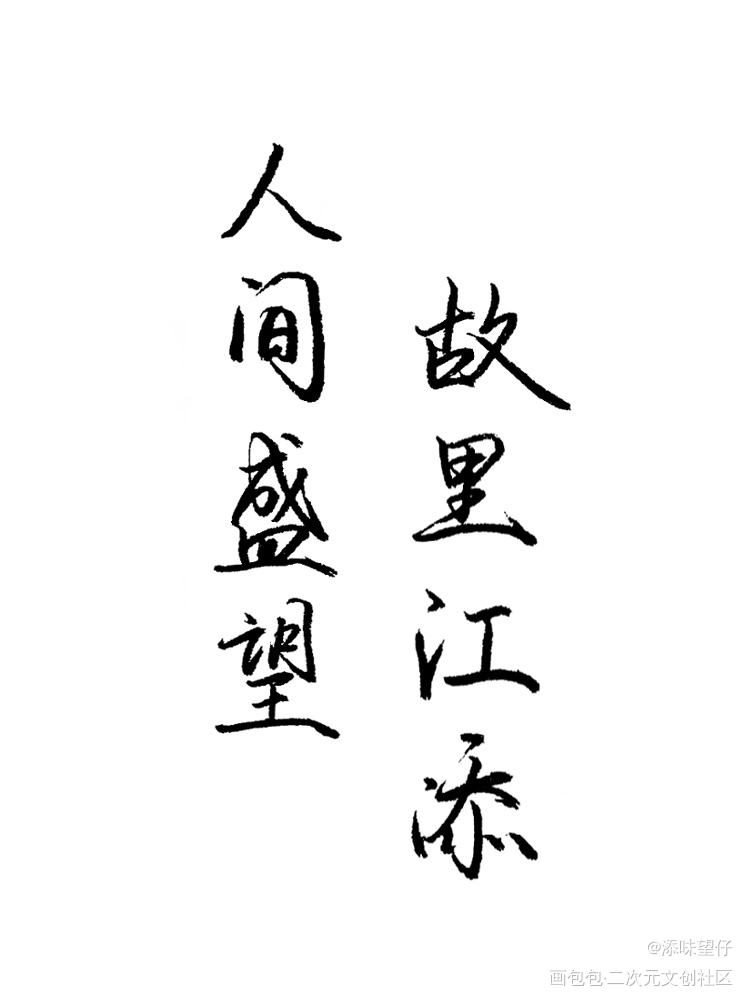 人间盛望
故里江添
@添味望仔
画包包·二次元文创社区